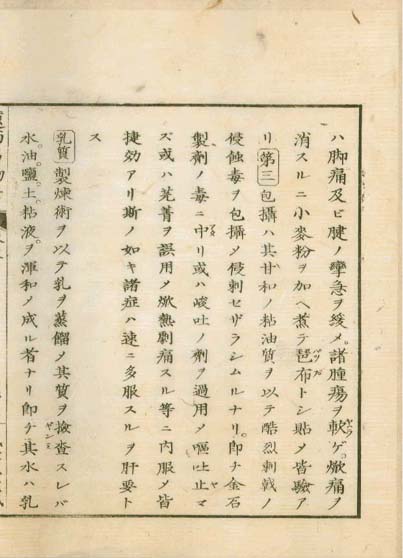 ハ脚痛及ビ腱ノ攣急ヲ緩メ。諸腫瘍ヲ軟ゲ。焮痛ヲ
消スルニ小麥粉ヲ加ヘ煮テ琶布トシ貼メ皆驗ア
リ 第三 包攝ハ其甘和ノ粘油質ヲ以テ酷烈刺戟ノ
侵蝕毒ヲ包攝メ侵刺セザラシムルナリ。即チ金石
製劑ノ毒ニ中リ或ハ峻吐ノ劑ヲ過用メ嘔吐止マ
ズ或ハ芫菁ヲ誤用メ焮熱劇痛スル等ニ内服メ皆
捷効アリ斯ノ如キ諸症ハ速ニ多服スルヲ肝要ト
ス
乳質 製煉術ヲ以テ乳ヲ蒸餾メ其質ヲ撿査スレバ
水。油。鹽。土。粘液。ヲ渾和メ成ル者ナリ即チ其水ハ乳